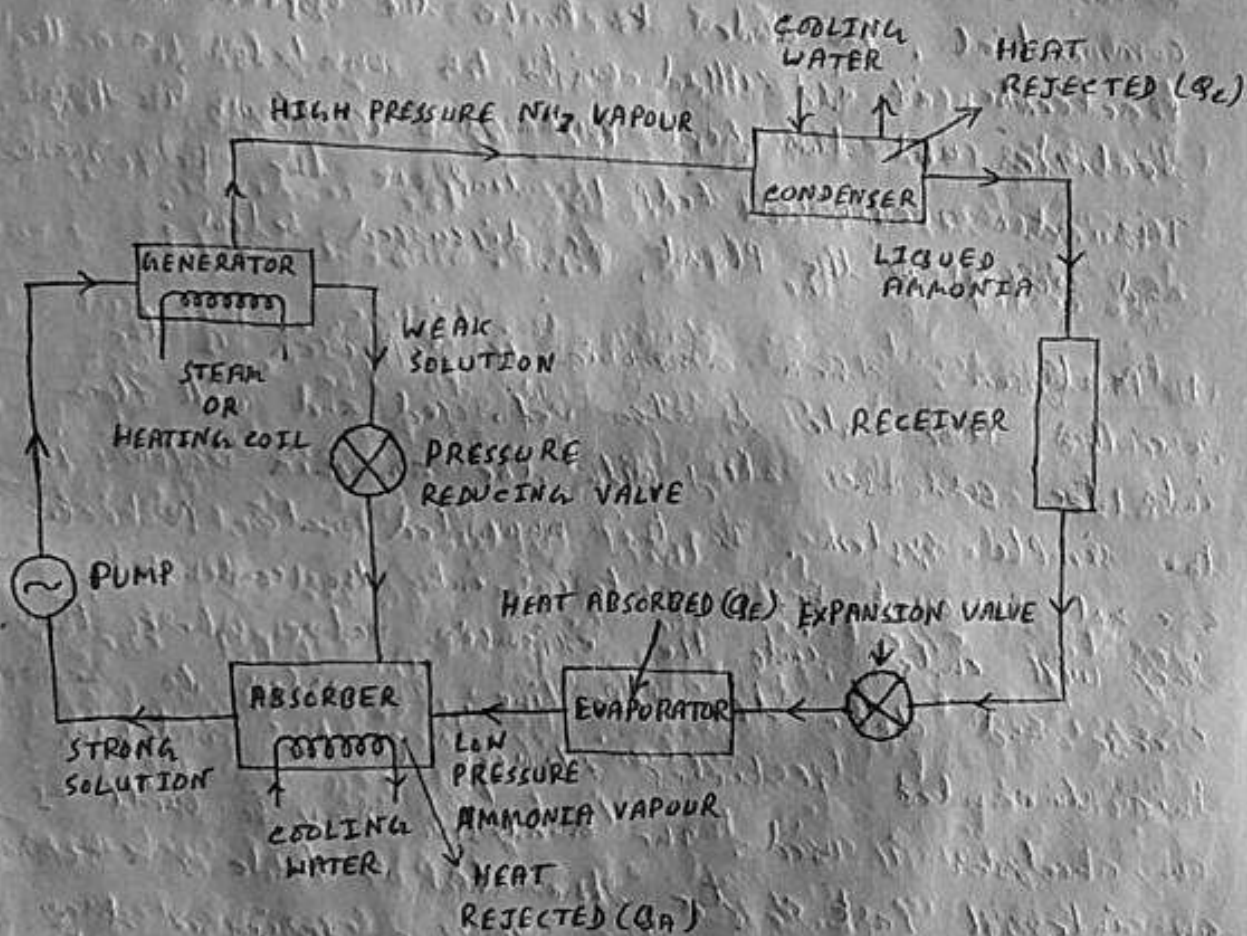 COOLING
WATER
HEAT
REJECTED (QC)
HIGH PRESSURE NH3 VAPOUR
CONDENSER
GENERATOR
LIQUED
AMMONIA
WEAK
SOLUTION
STEAM
OR
HEATING COIL
RECEIVER
PRESSURE
REDUCING VALVE
PUMP
HEAT ABSORBED (QE)
EXPANSION VALVE
ABSORBER
EVAPORATOR
STRONG
SOLUTION
LOW
PRESSURE
AMMONIA VAPOUR
COOLING
WATER
HEAT
REJECTED (QA)